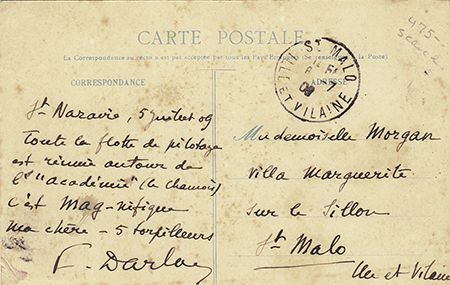 CARTE POSTALE
La Correspondance au recto n'est pas acceptée par tous les Pays Étrangers (Se renseigner à la Poste)
CORRESPONDANCE
ADRESSE
475-
ST MALO
ILLE ET VILAINE
7
09
St Nazaire, 5 juillet 09
Toute la flotte de pilotage
est réunie autour de
l'"académie" (le Chamois)
C'est Mag-nifique
ma chère - 5 torpilleurs
F. Darlan
Mademoiselle Morgan
Villa Marguerite
Sur le Sillon
St Malo
Ille et Vilaine